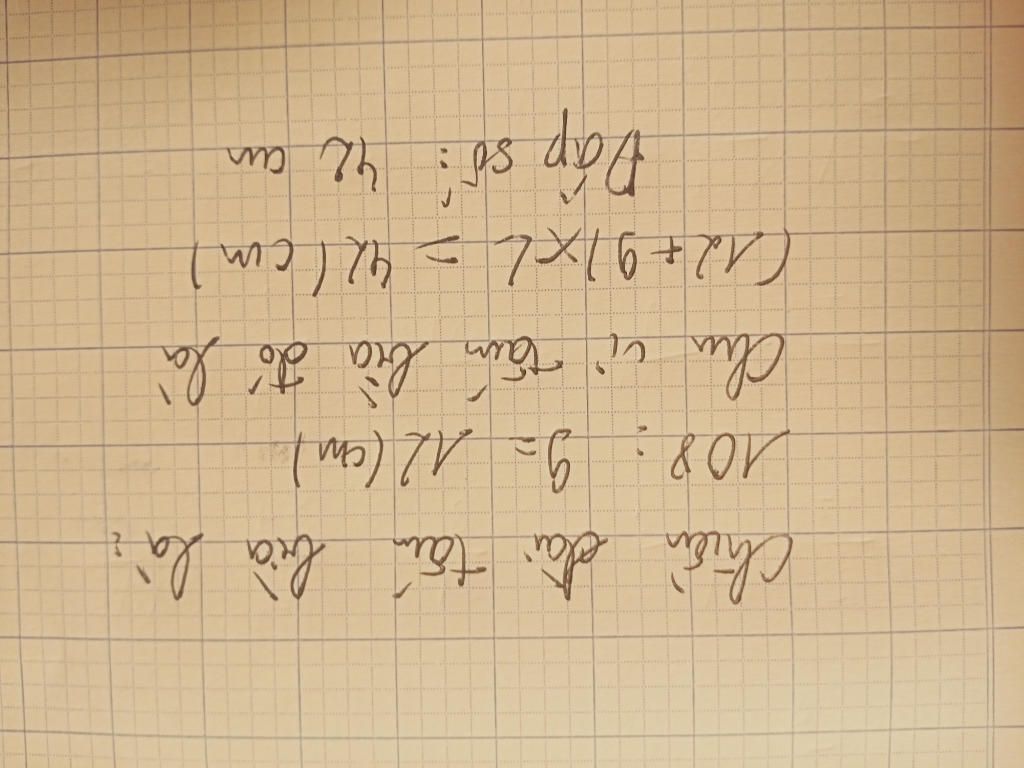 Chiều dài tấm bìa là:
108 : 9 = 12 (cm)
Chu vi tấm bìa đó là
(12 + 9) x 2 = 42 (cm)
Đáp số : 42 cm